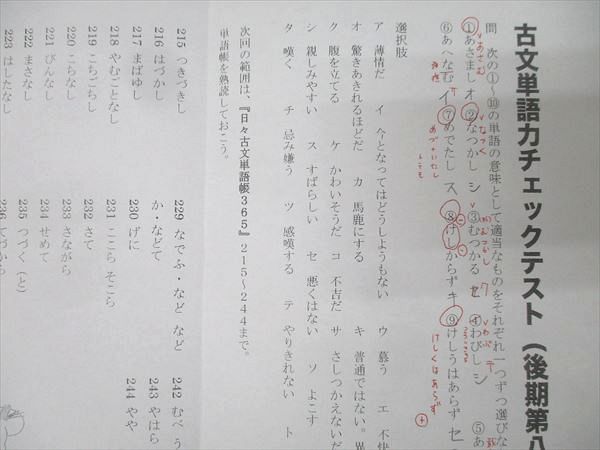 古文単語力チェックテスト（後期第八
問 次の①〜⑩の単語の意味として適当なものをそれぞれ一つずつ選びな
①あさまし オ ②なつかし シ ③むつかる ク ④わびし テ ⑤あ
⑥あへなむ イ ⑦めでたし ス ⑧けしからず キ ⑨けしうはあらず セ
けしくはあらず
選択肢
ア 薄情だ イ 今となってはどうしようもない ウ 慕う エ 不快
オ 驚きあきれるほどだ カ 馬鹿にする キ 普通ではない。異
ク 腹を立てる ケ かわいそうだ コ 不吉だ サ さしつかえないだ
シ 親しみやすい ス すばらしい セ 悪くはない ソ よこす
タ 嘆く チ 忌み嫌う ツ 感嘆する テ やりきれない ト
次回の範囲は、『日々古文単語帳３６５』２１５〜２４４まで。
単語帳を熟読しておこう。
215 つきづきし
216 はづかし
217 まばゆし
218 やむごとなし
219 こちごちし
220 こちなし
221 びんなし
222 まさなし
223 はしたなし
229 なでふ・など など
か・などて
230 げに
231 ここら そこら
232 さて
233 さながら
234 せめて
235 つづく（と）
236 てづから
242 むべ う
243 やはら
244 やや